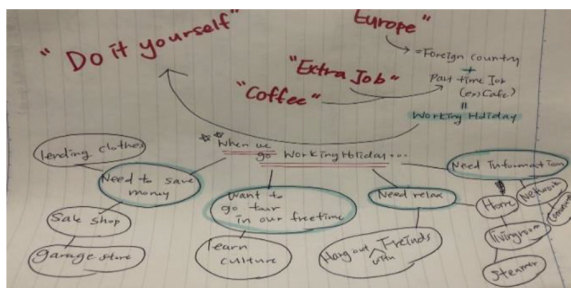 Europe"
"Do it yourself"
=Foreign country
+
"Extra Job"
Part time Job
(ex) Cafe)
"Coffee"
=
Working Holiday
When we
go Working Holiday...
Lending clothes
Need to save
money
Sale shop
garage store
Want to
go tour
in our freetime
learn
culture
Need relax
Hang out with Freinds
Need Information
Home
Network
livingroom